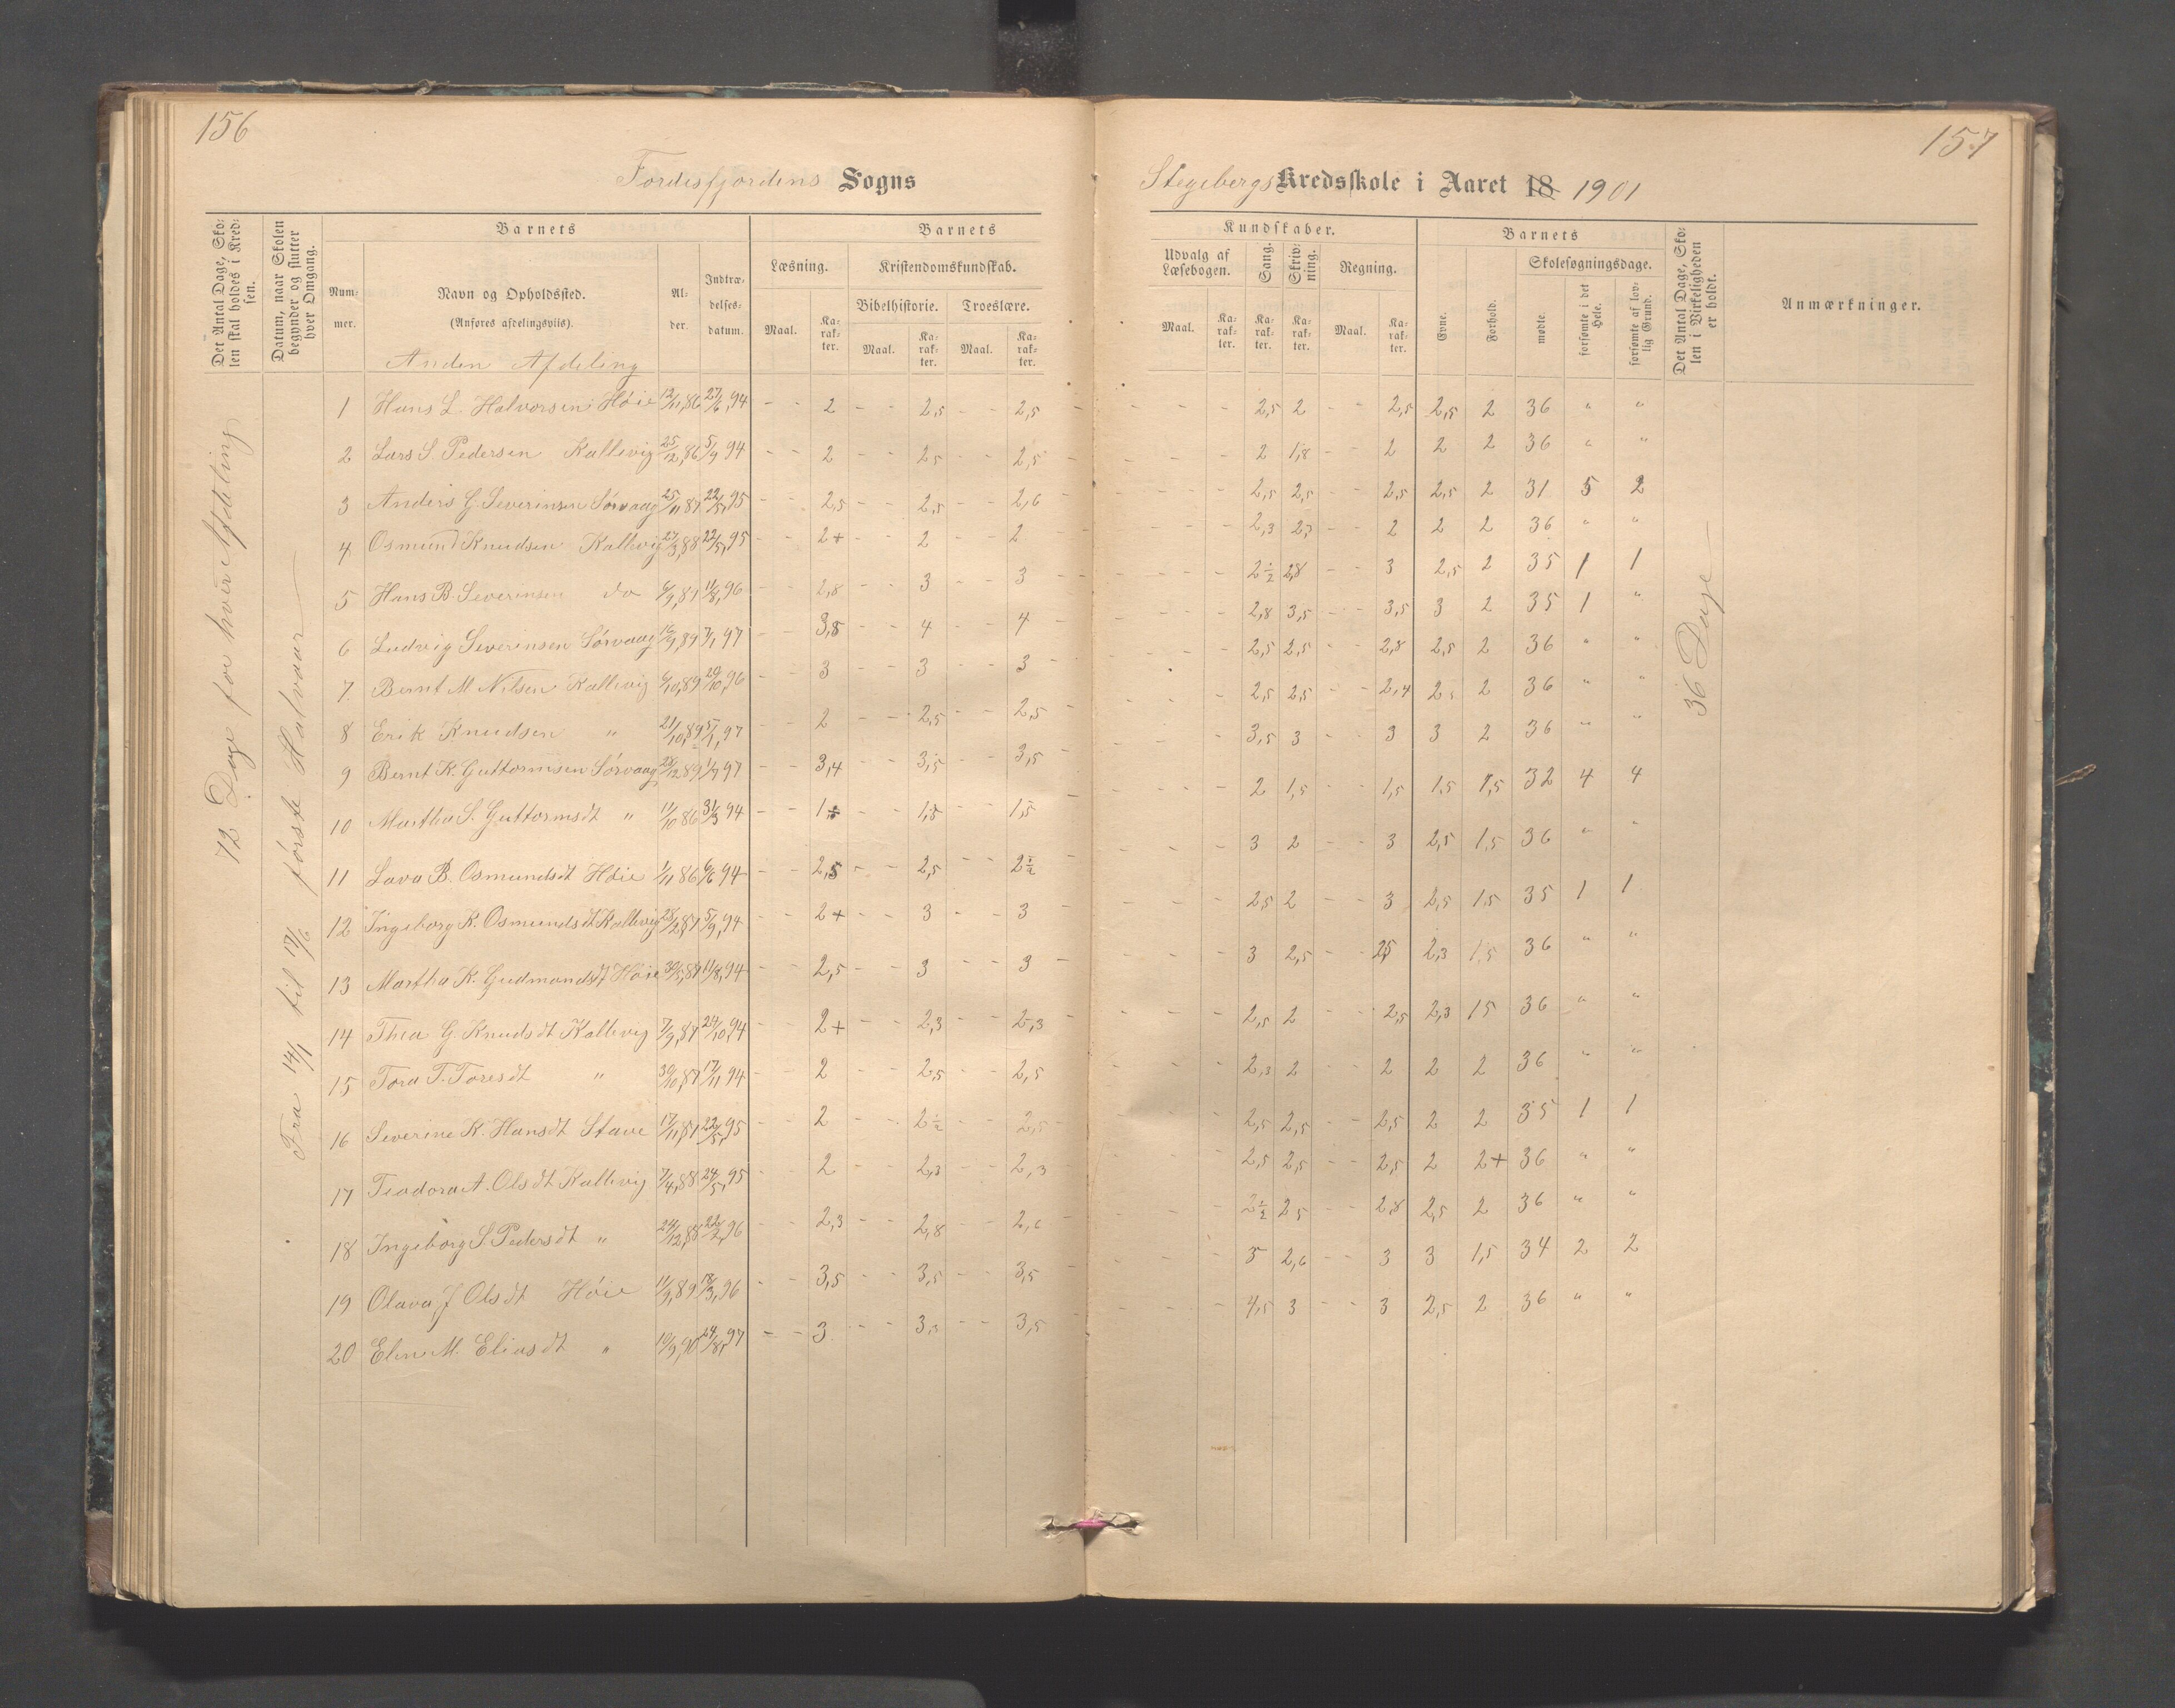 156
Fordesfjordens Sogns
Det Antal Dage, Skolen skal holdes i Kredsen.
Datum, naar Skolen begynder og slutter hver Omgang.
Barnets
Barnets
Nummer.
Navn og Opholdssted.
(Anføres afdelingsviis).
Alder.
Indtrædelsesdatum.
Læsning.
Kristendomskundskab.
Bibelhistorie. Troeslære.
Maal. Karakter. Maal. Karakter. Maal. Karakter.
Anden Afdeling
72 Dage for hver Afdeling
Fra 14/1 til 17/6 første Halvaar
1 Hans L. Halvorsen Høie 12/11,86 27/6,94 - - 2 - - 2,5 - - 2,5
2 Lars S. Pedersen Kallevig 25/12,86 5/9 94 - - 2 - - 2,5 - - 2,5
3 Anders G. Severinsen Sørvaag 25/11 87 22/5,95 - - 2,5 - - 2,5 - - 2,6
4 Osmund Knudsen Kallevig 27/3,88 22/5,95 - - 2+ - - 2 - - 2
5 Hans B. Severinsen do 6/9,87 11/8,96 - - 2,8 - - 3 - - 3
6 Ludvig Severinsen Sørvaag 16/9,89 7/1 97 - - 3,8 - - 4 - - 4
7 Bernt M. Nilsen Kallevig 6/10,89 20/10,96 - - 3 - - 3 - - 3
8 Erik Knudsen " 21/10,89 5/1,97 - - 2 - - 2,5 - - 2,5
9 Bernt K. Guttormsen Sørvaag 28/12 89 1/7 97 - - 3,4 - - 3,5 - - 3,5
10 Martha S. Guttormsdt " 11/10 86 31/3 94 - - 1,5 - - 1,5 - - 1,5
11 Lava B. Osmundsdt Høie 1/11 86 6/6 94 - - 2,5 - - 2,5 - - 2½
12 Ingeborg K. Osmundsdt Kallevig 28/2,87 5/9,94 - - 2+ - - 3 - - 3
13 Martha K. Gudmundsdt Høie 30/5,87 11/8,94 - - 2,5 - - 3 - - 3
14 Thea G. Knudsdt Kallevig 7/9,87 24/10,94 - - 2+ - - 2,3 - - 2,3
15 Tora T. Toresdt " 30/10,87 17/11 94 - - 2 - - 2,5 - - 2,5
16 Severine K. Hansdt Stave 17/11,87 22/5,95 - - 2 - - 2½ - - 2,5
17 Teodora A. Olsdt Kallevig 7/4,88 24/5,95 - - 2 - - 2,3 - - 2,3
18 Ingeborg S. Pedersdt " 24/12,88 22/2,96 - - 2,3 - - 2,8 - - 2,6
19 Olava J Olsdt Høie 11/9,89 18/3,96 - - 3,5 - - 3,5 - - 3,5
20 Elen M. Eliasdt " 10/9,90 24/8,97 - - 3 - - 3,5 - - 3,5
157
Stegebergs Kredsskole i Aaret 18 1901
Kundskaber.
Barnets
Udvalg af Læsebogen.
Sang.
Skrivning.
Regning.
Maal. Karakter. Karakter. Karakter. Maal. Karakter.
Evne.
Forhold.
Skolesøgningsdage.
mødte.
forsømte i det Hele.
forsømte af lovlig Grund.
Det Antal Dage, Skolen i Virkeligheden er holdt.
Anmærkninger.
36 Dage
- - - 2,5 2 - - 2,5 2,5 2 36 " "
- - - 2 1,8 - - 2 2 2 36 " "
- - - 2,5 2,5 - - 2,5 2,5 2 31 5 2
- - - 2,3 2,3 - - 2 2 2 36 " "
- - - 2½ 2,8 - - 3 2,5 2 35 1 1
- - - 2,8 3,5 - - 3,5 3 2 35 1 "
- - - 2,5 2,5 - - 2,8 2,5 2 36 " "
- - - 2,5 2,5 - - 2,4 2, 2 36 " "
- - - 3,5 3 - - 3 3 2 36 " "
- - - 2 1,5 - - 1,5 1,5 1,5 32 4 4
- - - 3 2 - - 3 2,5 1,5 36 " "
- - - 2,5 2 - - 3 2,5 1,5 35 1 1
- - - 3 2,5 - - 2,5 2,3 1,5 36 " "
- - - 2,5 2 - - 2,5 2,3 15 36 " "
- - - 2,3 2 - - 2 2 2 36 " "
- - - 2,5 2,5 - - 2,5 2 2 35 1 1
- - - 2,5 2,5 - - 2,5 2 2+ 36 " "
- - - 2½ 2 5 - - 2,8 2,5 2 36 " "
- - - 3 2,6 - - 3 3 1,5 34 2 2
- - - 4,5 3 - - 3 2,5 2 36 " "